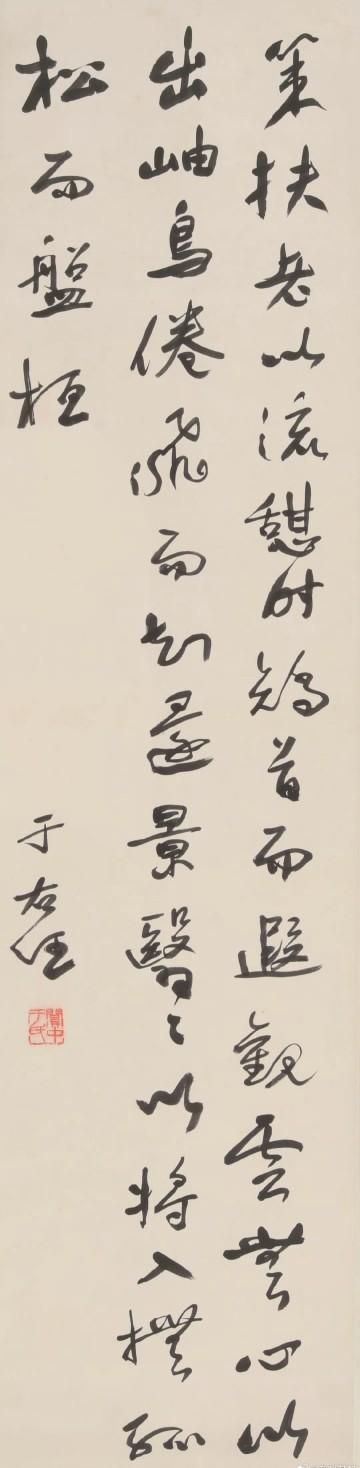 策扶老以流憩时矫首而遐觀雲無心以
出岫鳥倦飛而知還景翳々以將入撫孤
松而盤桓
于右任
關中于氏